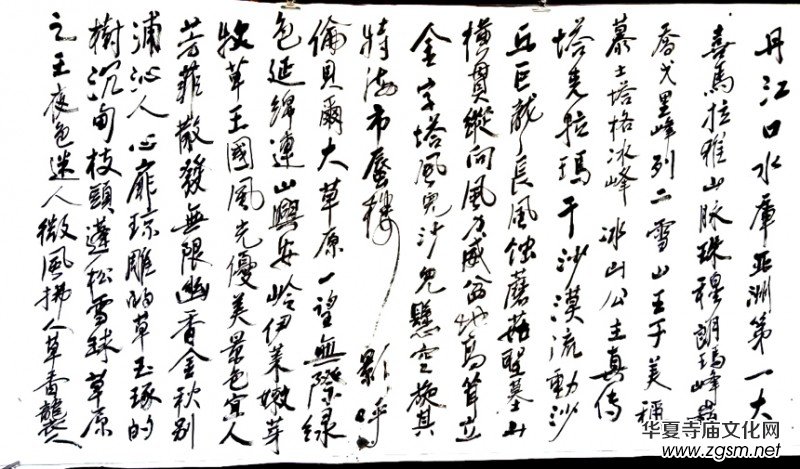 丹江口水庫亞洲第一大
喜馬拉雅山脉珠穆朗瑪峰
喬戈里峰列二雪山王子美稱
慕士塔格冰峰冰山公主真傳
塔克拉瑪干沙漠流動沙
丘巨龍長風蝕蘑菇
橫貫縱向風力威盆地高聳立
金字塔風兒沙兒懸空旋其
特海市蜃樓影呼
倫貝爾大草原一望無際绿
色延綿連山興安岭伊萊嫩芽
牧草王國風光優美景色宜人
芳菲散發無限幽香金秋别
浦沁人心扉琼雕的草玉琢的
樹沉甸枝頭蓬松雪球草原
之王夜色迷人微風拂人草香襲人
华夏寺庙文化网
www.zgsm.net